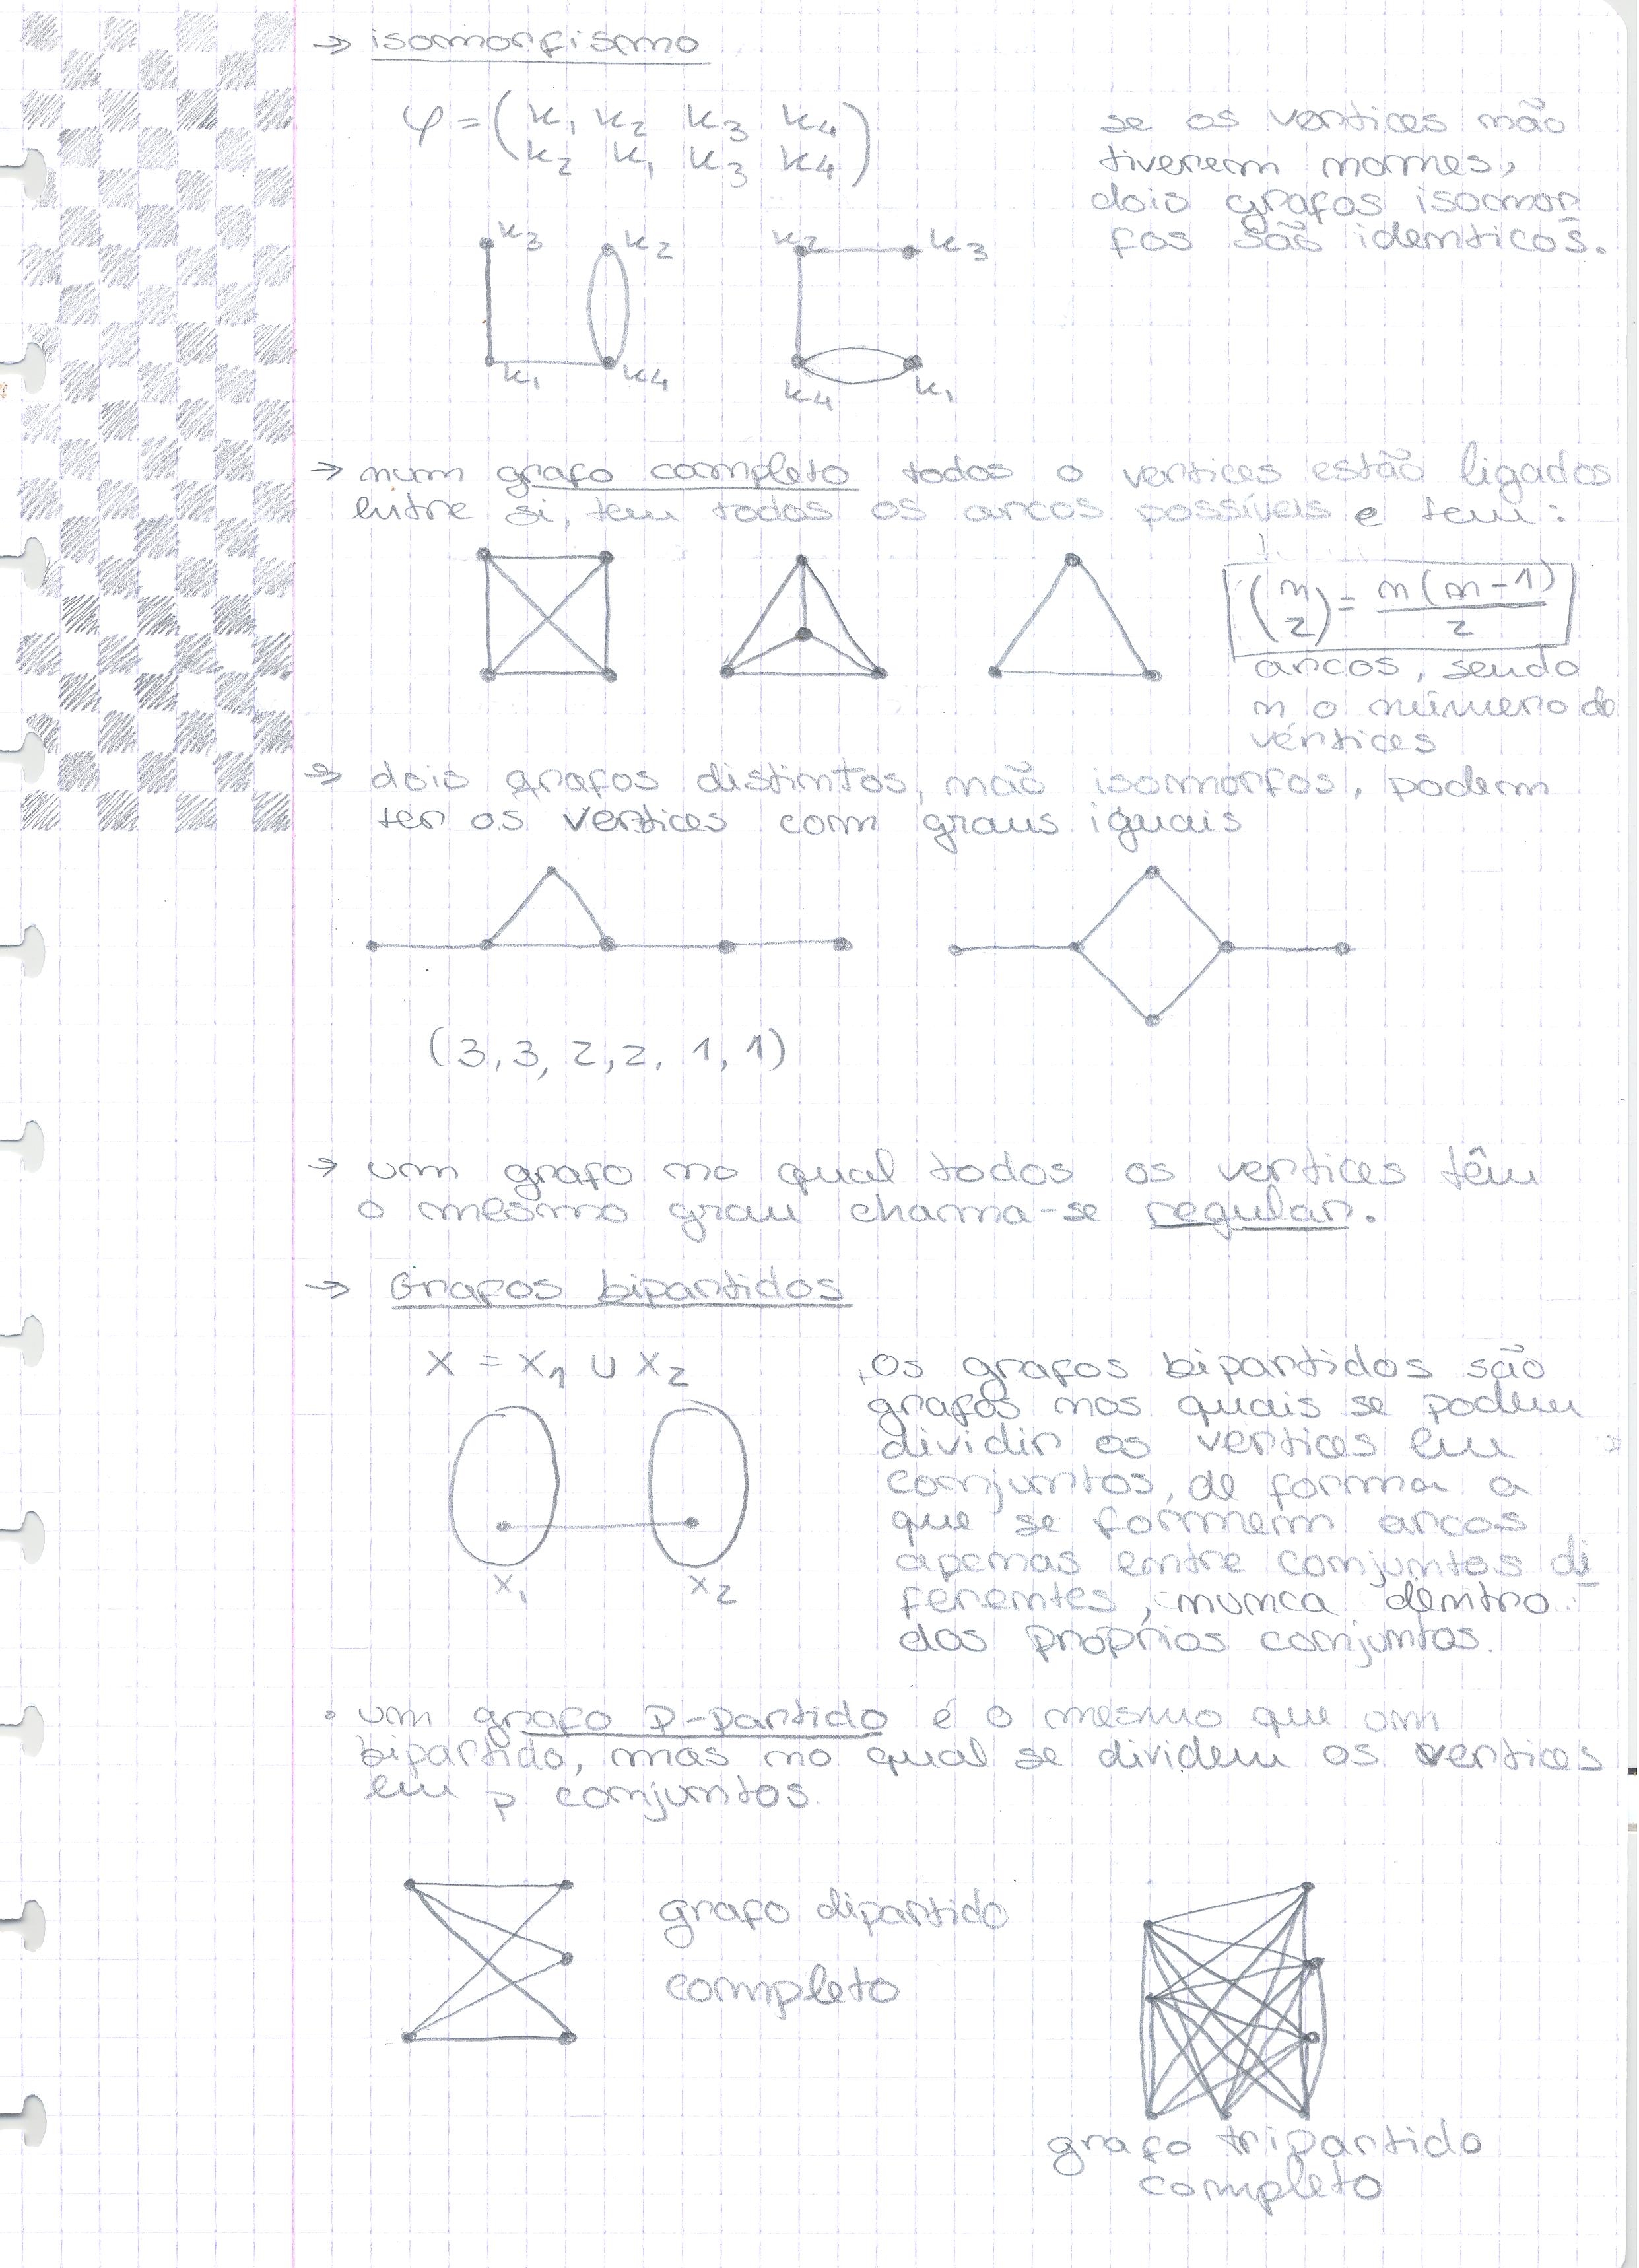 → isomorfismo
φ = ( k₁ k₂ k₃ k₄
k₂ k₁ k₃ k₄ )
se os vertices não
tiverem nomes,
dois grafos isomor
fos são identicos.
k₃ k₂ k₂ k₃
k₁ k₄ k₄ k₁
→ num grafo completo todos o vertices estão ligados
entre si, tem todos os arcos possíveis e tem:
(n 2) = n(n-1)/2
arcos, sendo
n o número de
vértices
→ dois grafos distintos, não isomorfos, podem
ter os vertices com graus iguais
(3,3,2,2,1,1)
→ um grafo no qual todos os vertices têm
o mesmo grau chama-se regular.
→ Grafos bipartidos
X = X₁ ∪ X₂
Os grafos bipartidos são
grafos nos quais se podem
dividir os vertices em
conjuntos, de forma a
que se formem arcos
apenas entre conjuntos di
ferentes, nunca dentro
dos próprios conjuntos.
X₁ X₂
• um grafo p-partido é o mesmo que um
bipartido, mas no qual se dividem os vertices
em p conjuntos.
grafo dipartido
completo
grafo tripartido
completo